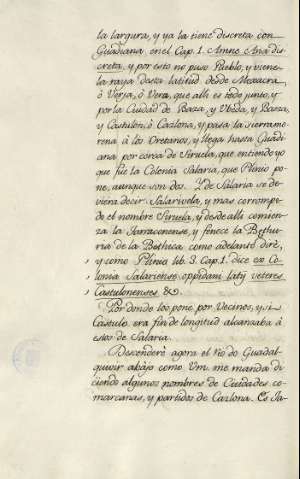 la largura, y ya la tiene discreta con
Guadiana en el Cap. 1. Amne Ana dis-
creta, y por esto no puso Pueblo, y viene
la raya desta latitud desde Muxacra
ò Verja, ò Vera, que alli es todo junto, y
por la Ciudad de Baza, y Ubeda, y Baeza,
y Castulon, ò Cazlona, y pasa la sierramo-
rena à los Oretanos, y llega hasta Guadi-
ana por cerca de Siruela, que entiendo yo
que fue la Colonia Salaria, que Plinio po-
ne, aunque son dos. Y de Salaria se de-
viera decir Salariuela, y mas corrompi-
do el nombre Siruela, y desde alli comien-
za la Tarraconense, y fenece la Bethu-
ria de la Bethica como adelante diré,
y como Plinio lib. 3. Cap. 1. dice ex Co-
lonia Salariense oppidani Latij veteres
Castulonenses &c.
Por donde los pone por Vecinos, y si
Castulo era fin de longitud alcanzaba à
estos de Salaria.
Descenderé agora el rio do Guadal-
quivir abajo como Vm. me manda di-
ciendo algunos nombres de Ciudades co-
marcanas, y partidos de Cazlona. Es Ja-